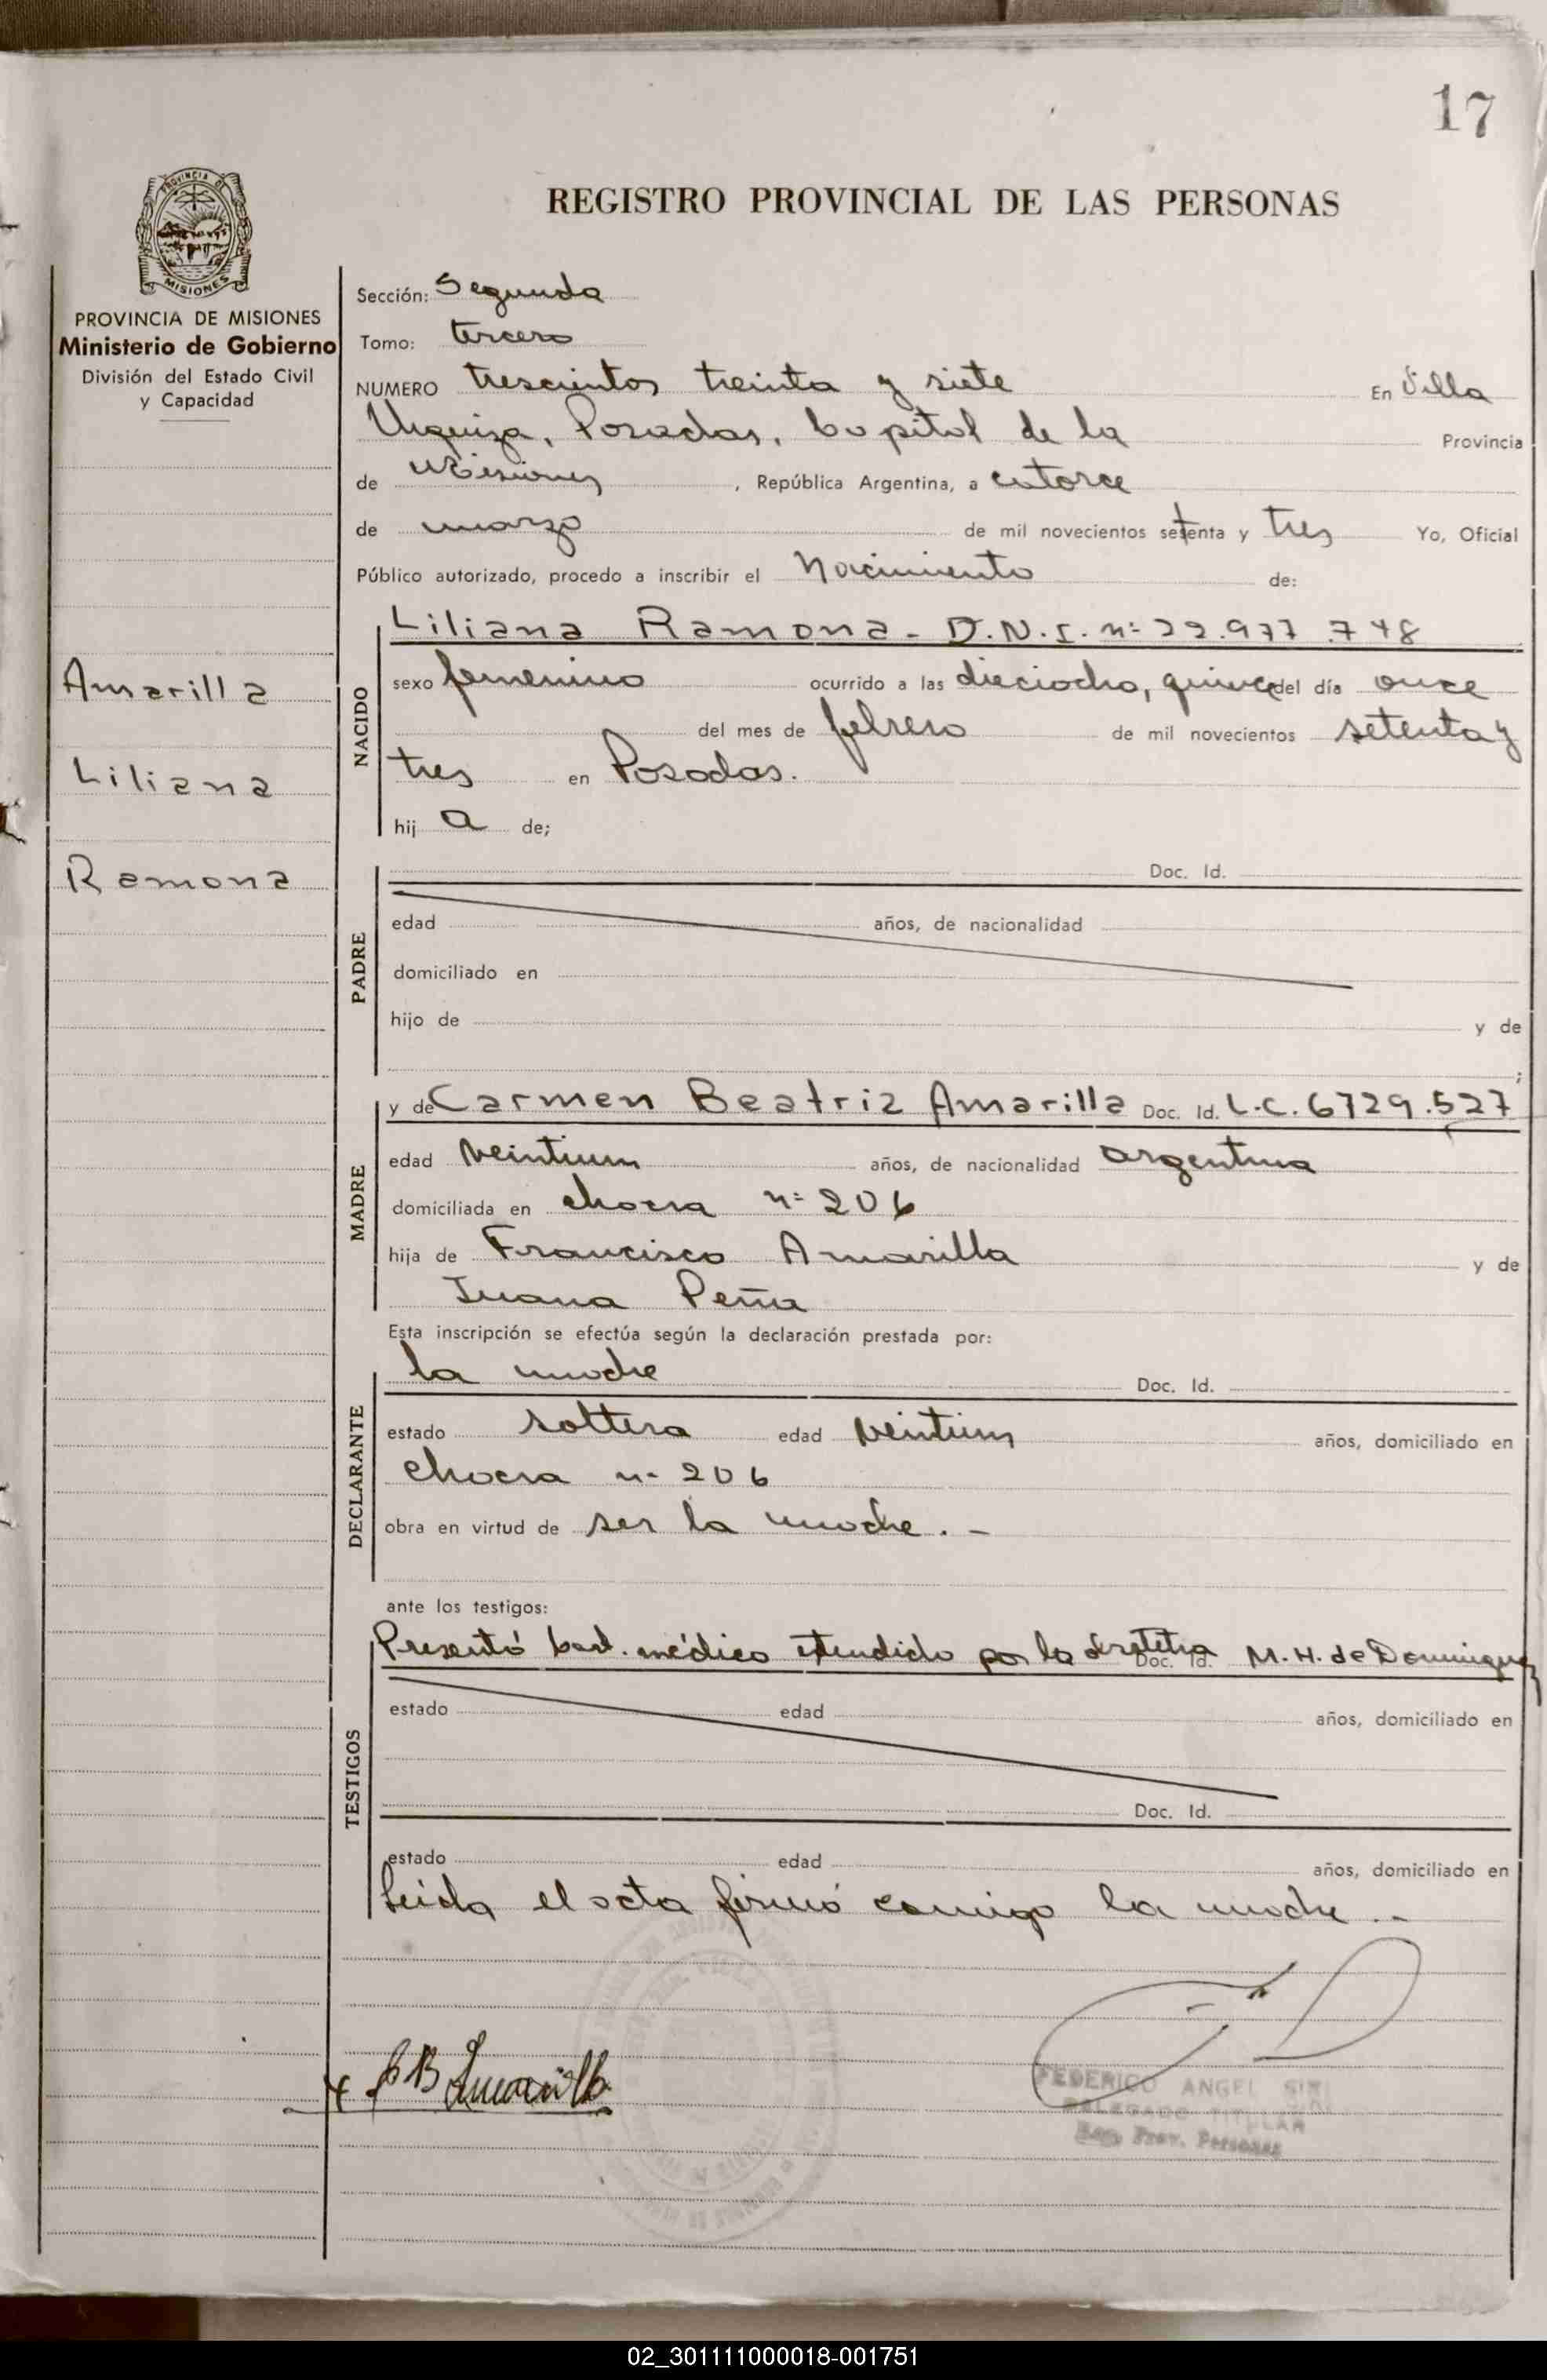 17
PROVINCIA DE
MISIONES
REGISTRO PROVINCIAL DE LAS PERSONAS
PROVINCIA DE MISIONES
Ministerio de Gobierno
División del Estado Civil
y Capacidad
Amarilla
Liliana
Ramona
Sección: Segunda
Tomo: tercero
NUMERO trescientos treinta y siete En Villa
Urquiza, Posadas, Capital de la Provincia
de Misiones, República Argentina, a catorce
de marzo de mil novecientos setenta y tres Yo, Oficial
Público autorizado, procedo a inscribir el Nacimiento de:
NACIDO
Liliana Ramona - D.N.I. nº 22.977.748
sexo femenino ocurrido a las dieciocho, quince del día once
del mes de febrero de mil novecientos setenta y
tres en Posadas.
hij a de;
PADRE
Doc. Id.
edad años, de nacionalidad
domiciliado en
hijo de y de
;
MADRE
y de Carmen Beatriz Amarilla Doc. Id. L.C. 6729.527
edad veintiun años, de nacionalidad argentina
domiciliada en chacra nº 206
hija de Francisco Amarilla y de
Juana Peña
Esta inscripción se efectúa según la declaración prestada por:
DECLARANTE
la madre Doc. Id.
estado soltera edad veintiun años, domiciliado en
chacra nº 206
obra en virtud de ser la madre. -
ante los testigos:
TESTIGOS
Presentó cert. médico extendido por la obstetra Doc. Id. M. H. de Dominguez
estado edad años, domiciliado en
Doc. Id.
estado edad años, domiciliado en
Leida el acta firmó conmigo la madre. -
C B Amarilla
FEDERICO ANGEL SIRI
DELEGADO TITULAR
Reg. Prov. Personas
02_301111000018-001751